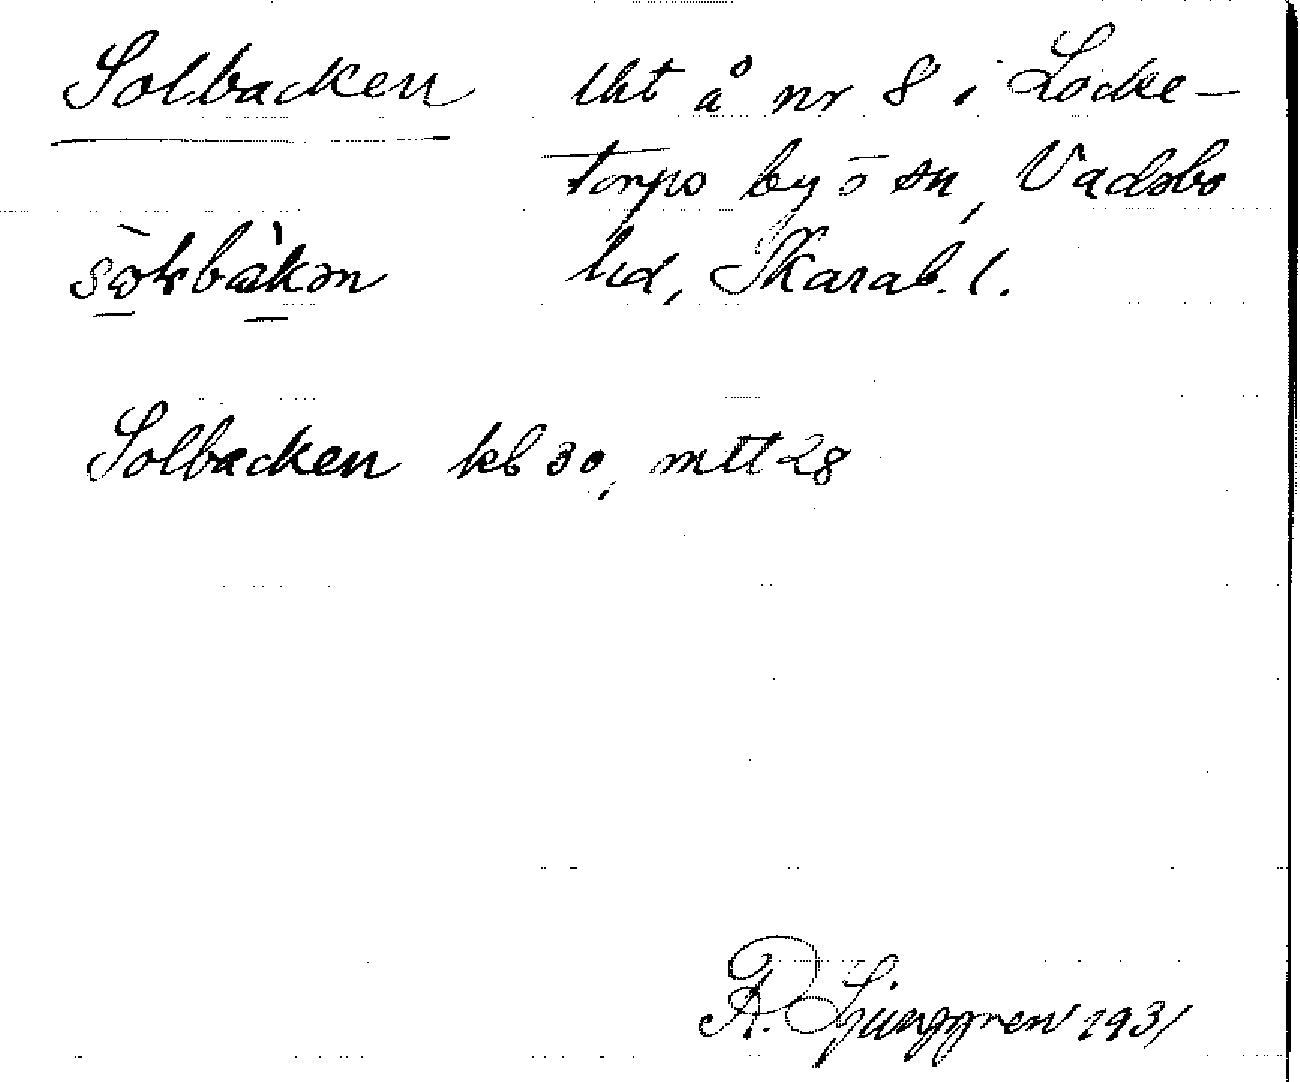 Solbacken lht å nr 8 i Locke-
torps by ö sn, Vadsbo
hd, Skarab. l.
Solbacken kb 30, mtt 28
R. Ljunggren 1931